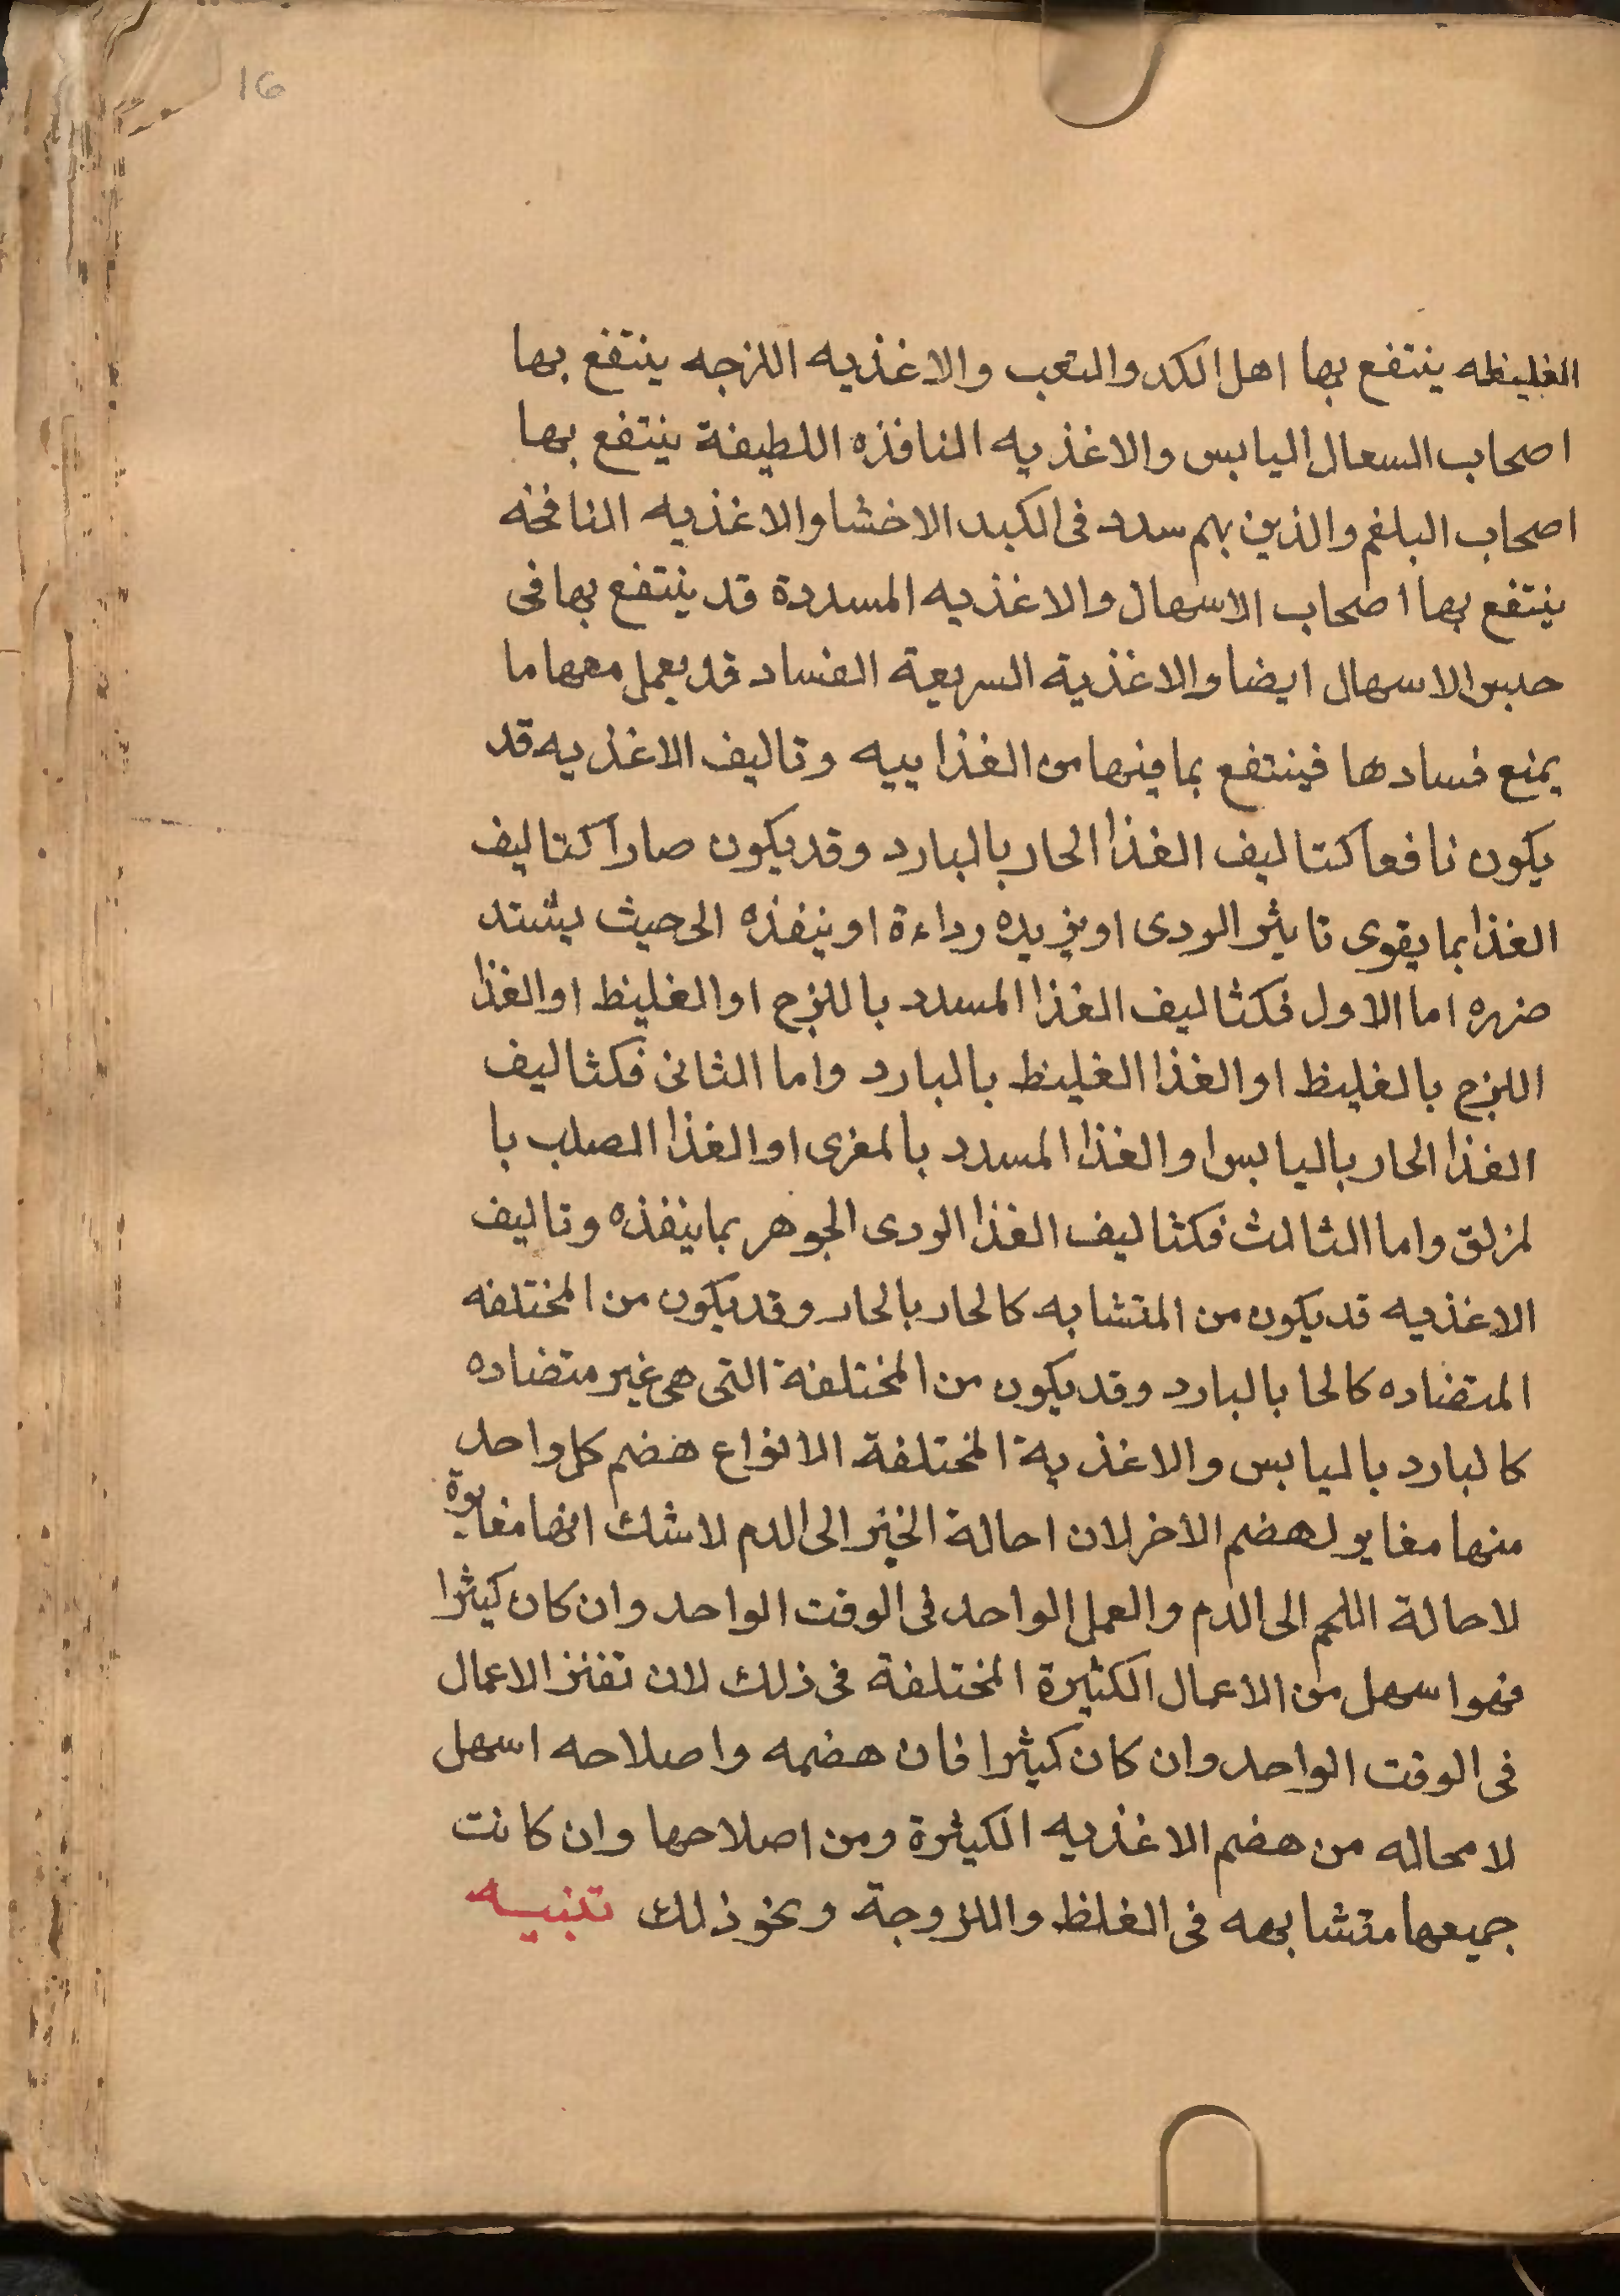 16
الغليظه ينتفع بها اهل الكد والتعب والاغذيه اللزجه ينتفع بها
اصحاب السعال اليابس والاغذيه النافذه اللطيفة ينتفع بها
اصحاب البلغم والذين بهم سدد فى الكبد الاخشا والاغذيه النافخه
ينتفع بها اصحاب الاسهال والاغذيه المسددة قد ينتفع بها فى
حبس الاسهال ايضا والاغذية السريعة الفساد قد يعمل معها ما
يمنع فسادها فينتفع بما فيها من الغذاييه وتاليف الاغذيه قد
يكون نافعا كتاليف الغذا الحار بالبارد وقد يكون صارا كتاليف
الغذا بما يقوى تاثير الردى او يزيده رداءة او ينفذه الى حيث يشتد
ضرره اما الاول فكثاليف الغذا المسدد باللزج او الغليظ او الغذا
اللزج بالغليظ او الغذا الغليظ بالبارد واما الثانى فكثاليف
الغذا الحار باليابس او الغذا المسدد بالمغرى او الغذا الصلب با
لمزلق واما الثالث فكثاليف الغذا الردى الجوهر بما ينفذه وتاليف
الاغذيه قد يكون من المتشابه كالحار بالحار وقد يكون من المختلفه
المتضاده كالحا بالبارد وقد يكون من المختلفة التى هى غير متضاده
كالبارد باليابس والاغذية المختلفة الانواع هضم كل واحد
منها مغاير لهضم الاخر لان احالة الخبز الى الدم لاشك انها مغايرة
لاحالة اللحم الى الدم والعمل الواحد فى الوقت الواحد وان كان كثيرا
فهو اسهل من الاعمال الكثيرة المختلفة فى ذلك لان تفنز الاعمال
فى الوقت الواحد وان كان كثيرا فان هضمه واصلاحه اسهل
لا محاله من هضم الاغذيه الكثيرة ومن اصلاحها وان كانت
جميعها متشابهه فى الغلظ واللزوجة ونحو ذلك تنبيه